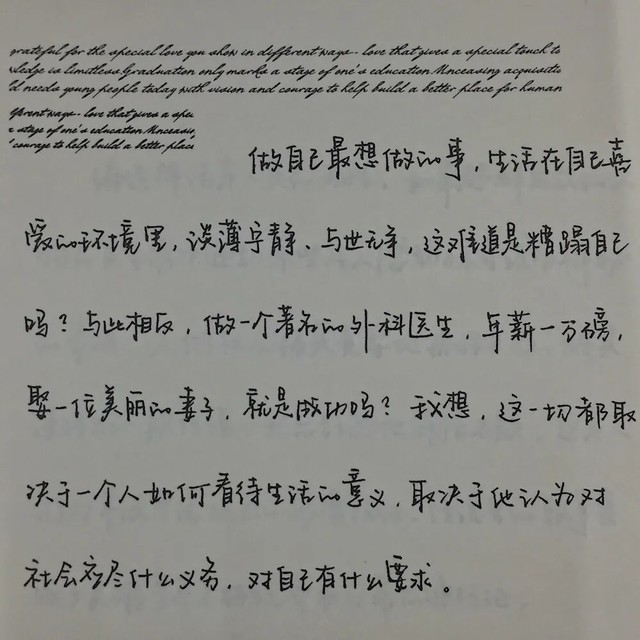 grateful for the special love you show in different ways. love that gives a special touch to
wledge is limitless.Graduation only marks a stage of one's education.Unceasing acquisitio
d needs young people today with vision and courage to help build a better place for human
fferent ways. love that gives a spec
a stage of one's education.Unceasin,
courage to help build a better place
做自己最想做的事，生活在自己喜
爱的环境里，淡薄宁静、与世无争，这难道是糟蹋自己
吗？与此相反，做一个著名的外科医生，年薪一万磅，
娶一位美丽的妻子，就是成功吗？我想，这一切都取
决于一个人如何看待生活的意义，取决于他认为对
社会应尽什么义务，对自己有什么要求。